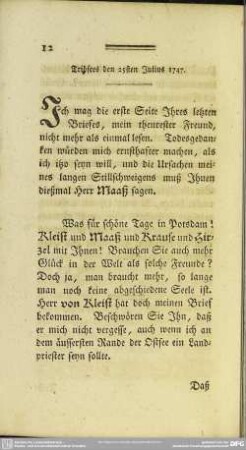 12
Tribsees den 25sten Julius 1747.
Ich mag die erste Seite Ihres letzten
Briefes, mein theurester Freund,
nicht mehr als einmal lesen. Todesgedan-
ken würden mich ernsthafter machen, als
ich itzo seyn will, und die Ursachen mei-
nes langen Stillschweigens muß Ihnen
dießmal Herr Maaß sagen.
Was für schöne Tage in Potsdam!
Kleist und Maaß und Krause und Hir-
zel mit Ihnen! Brauchen Sie auch mehr
Glück in der Welt als solche Freunde?
Doch ja, man braucht mehr, so lange
man noch keine abgeschiedene Seele ist.
Herr von Kleist hat doch meinen Brief
bekommen. Beschwören Sie Ihn, daß
er mich nicht vergesse, auch wenn ich an
dem äussersten Rande der Ostsee ein Land-
priester seyn sollte.
Daß